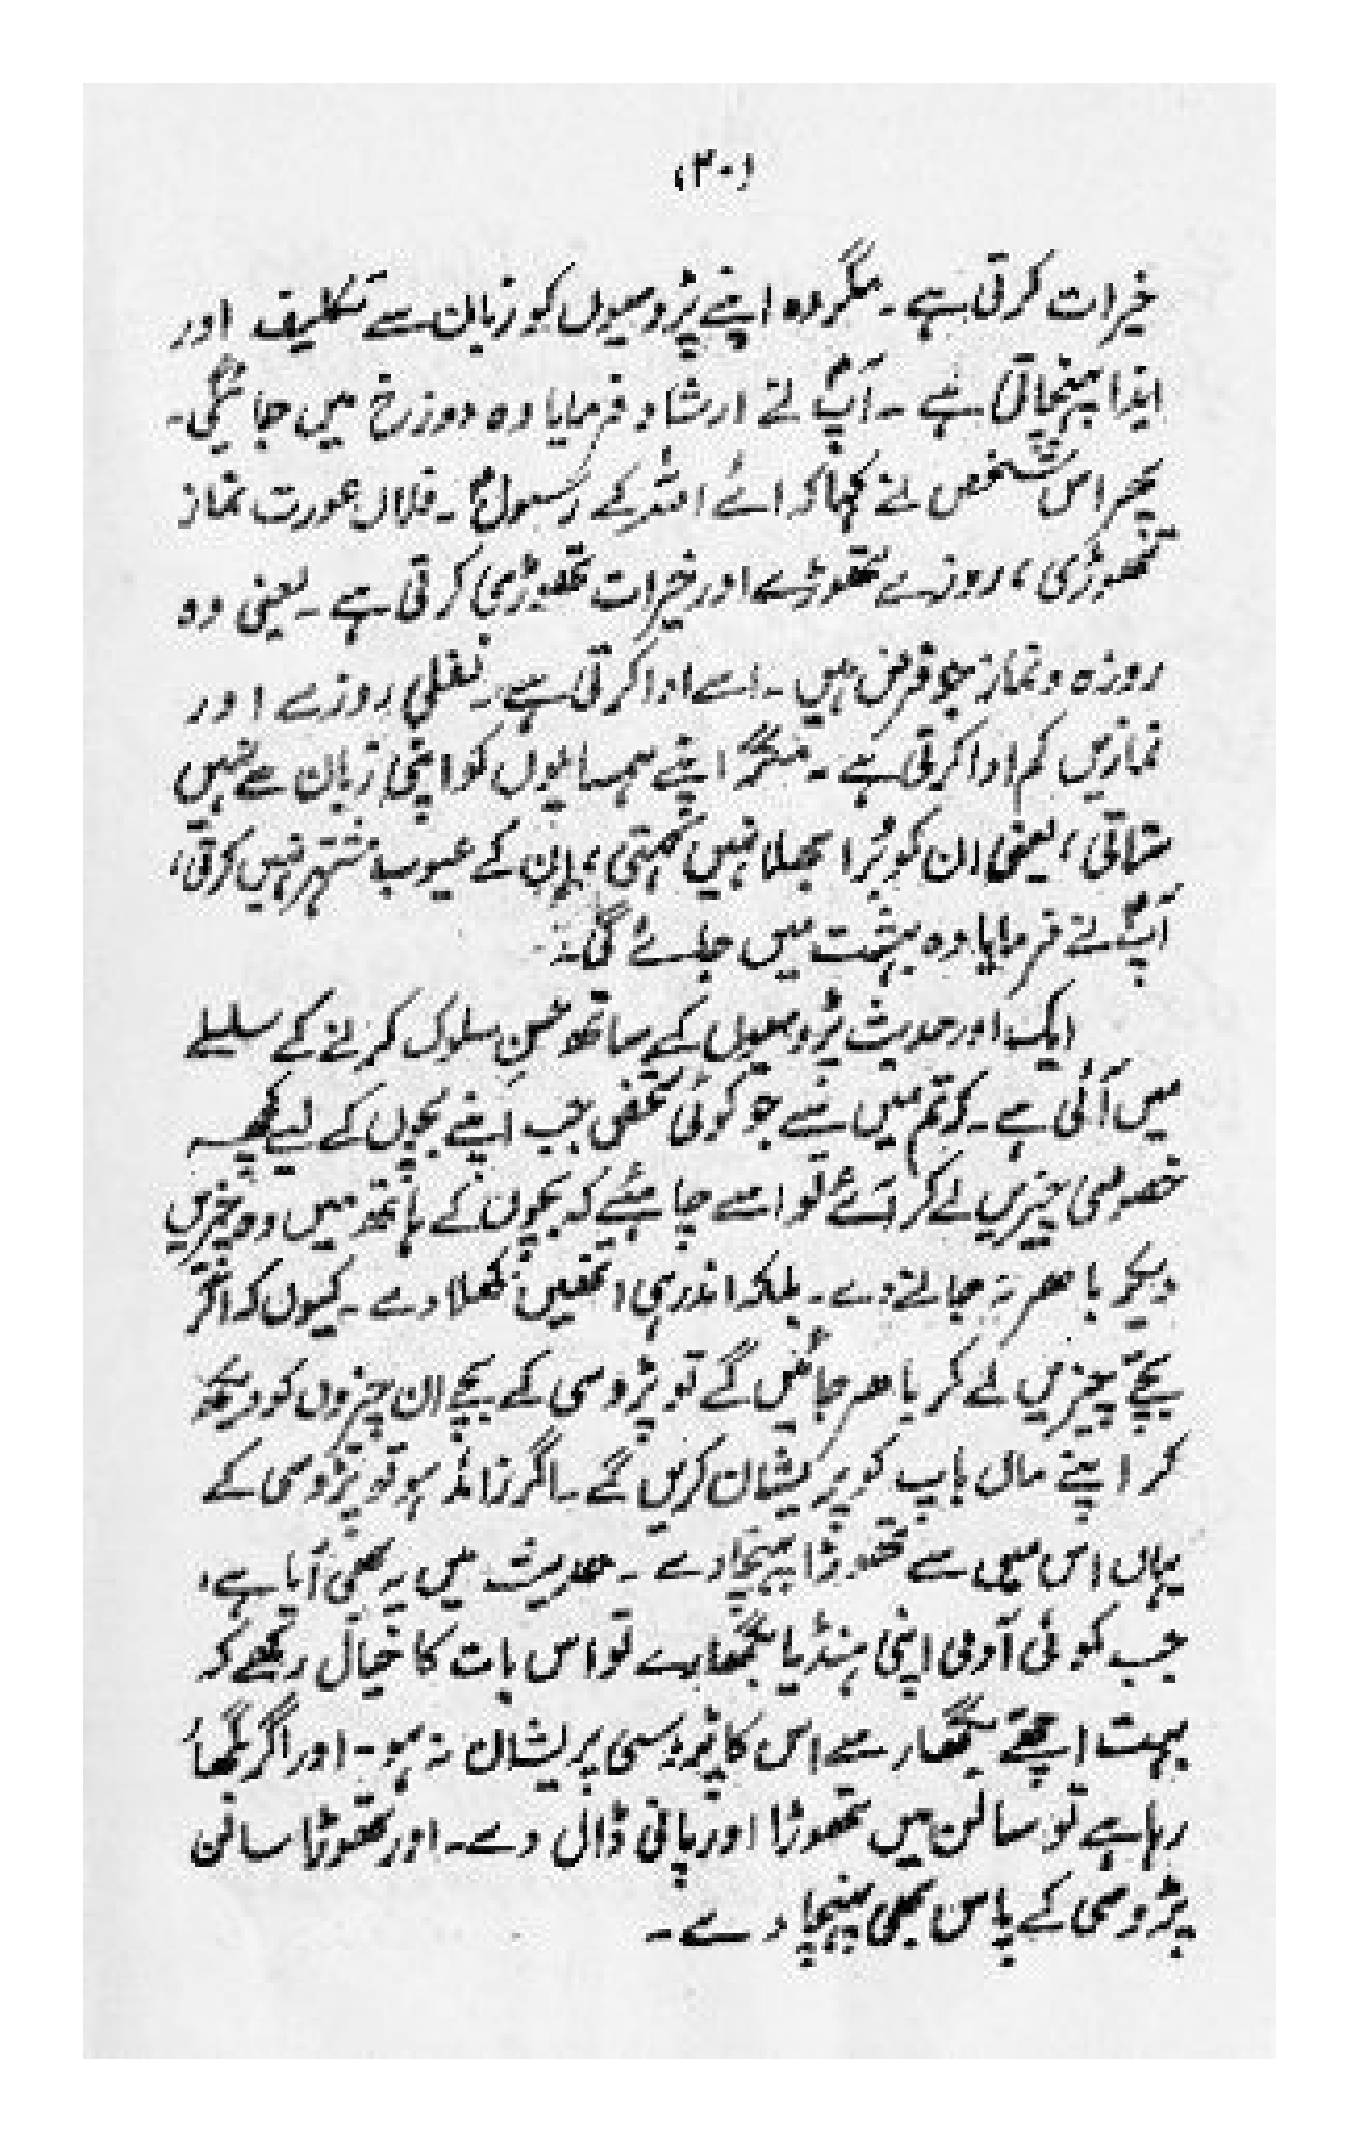 (۳۰)
خیرات کرتی ہے ۔ مگر وہ اپنے پڑوسیوں کو زبان سے تکلیف اور
ایذا پہنچاتی ہے ۔ آپؐ نے ارشاد فرمایا وہ دوزخ میں جائیگی ۔
پھر اس شخص نے کہا کہ ائے اللہ کے رسولؐ ۔ فلاں عورت نماز
تھوڑی ، روزے تھوڑے اور خیرات تھوڑی کرتی ہے ۔ یعنی وہ
روزہ و نماز جو فرض ہیں ۔ اسے ادا کرتی ہے ۔ نفلی روزے اور
نمازیں کم ادا کرتی ہے ۔ مگر اپنے ہمسایوں کو اپنی زبان سے نہیں
ستاتی ، یعنی ان کو بُرا بھلا نہیں کہتی ، ان کے عیوب مشتہر نہیں کرتی ،
آپؐ نے فرمایا وہ بہشت میں جائے گی ۔
ایک اور حدیث پڑوسیوں کے ساتھ حسن سلوک کرنے کے سلسلے
میں آئی ہے ۔ کہ تم میں سے جو کوئی شخص جب اپنے بچوں کے لیے کچھ
خصوصی چیزیں لے کر آئے تو اسے چاہئیے کہ بچوں کے ہاتھ میں وہ چیزیں
دیکر باہر نہ جانے دے ۔ بلکہ اندر ہی انھیں کھلا دے ۔ کیوں کہ اگر
بچے چیزیں لے کر باہر جائیں گے تو پڑوسی کے بچے ان چیزوں کو دیکھ
کر اپنے ماں باپ کو پریشان کریں گے ۔ اگر زائد ہو تو پڑوسی کے
یہاں اس میں سے تھوڑا پہنچا دے ۔ حدیث میں یہ بھی آیا ہے ،
جب کوئی آدمی اپنی ہنڈیا بگھارے تو اس بات کا خیال رکھے کہ
بہت اچھے بگھار سے اس کا پڑوسی پریشان نہ ہو ۔ اور اگر بگھار
رہا ہے تو سالن میں تھوڑا اور پانی ڈال دے ۔ اور تھوڑا سالن
پڑوسی کے پاس بھی پہنچا دے ۔